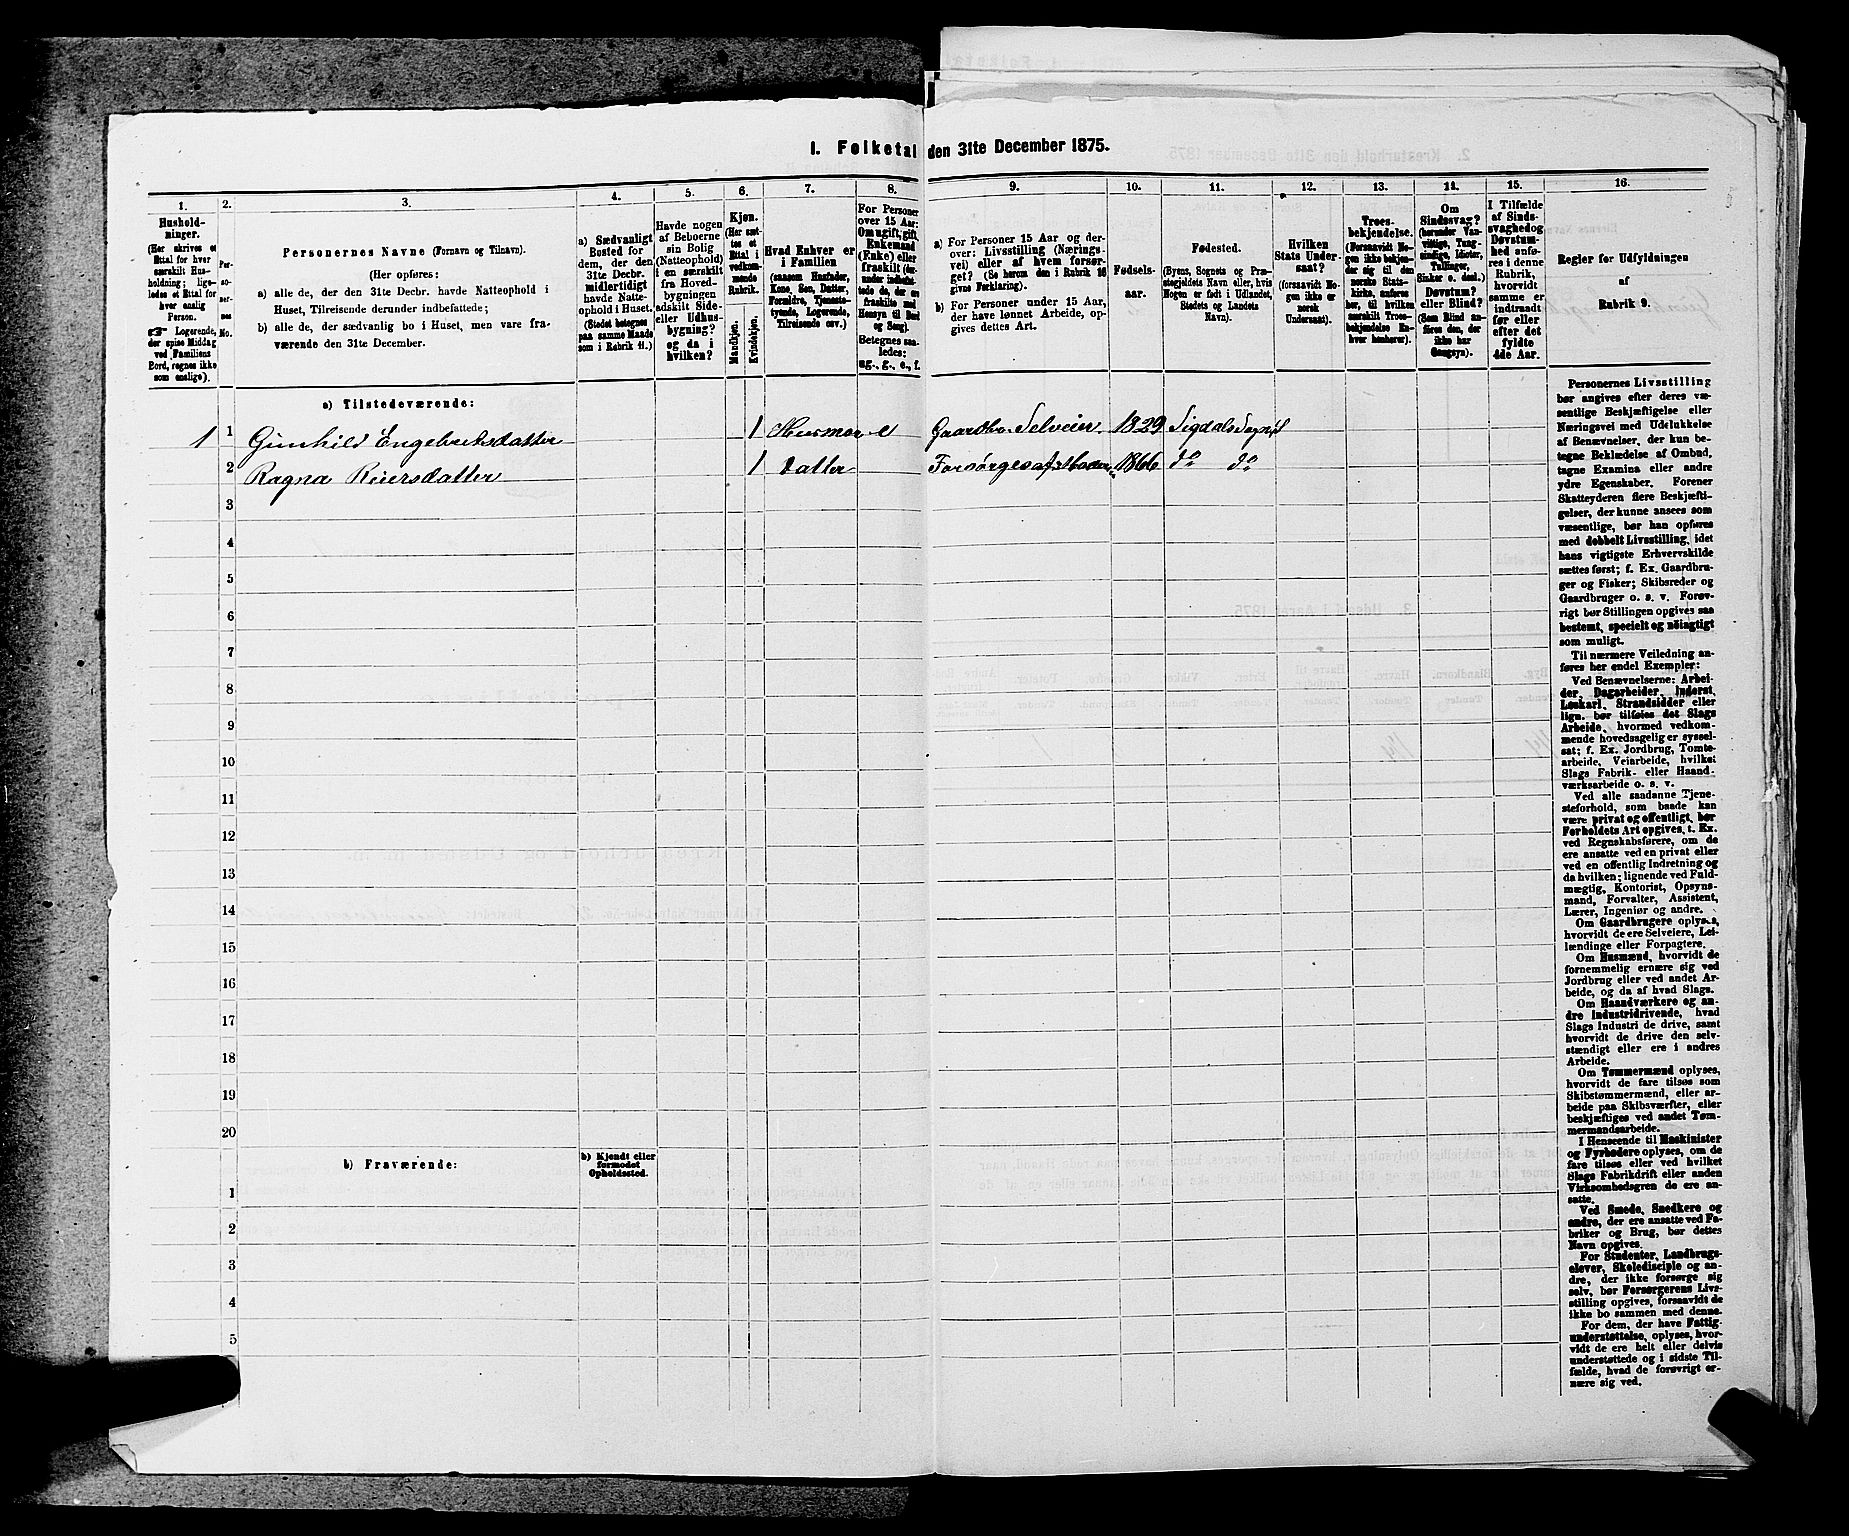 1. Folketal den 31te December 1875.
1. 2. 3. 4. 5. 6. 7. 8. 9. 10. 11. 12. 13. 14. 15. 16.
Hushold-
ninger.
(Her skrives et
Ettal for hver
særskilt Hus-
holdning; lige-
ledes et Ettal for
hver enslig
Person.
☞ Logerende,
der spise Middag
ved Familiens
Bord, regnes ikke
som enslige).
Per-
so-
ner-
nes
No.
Personernes Navne (Fornavn og Tilnavn).
(Her opføres:
a) alle de, der den 31te Decbr. havde Natteophold i
Huset, Tilreisende derunder indbefattede;
b) alle de, der sædvanlig bo i Huset, men vare fra-
værende den 31te December.
a) Sædvanligt
Bosted for
dem, der den
31te Decbr.
midlertidigt
havde Natte-
ophold i Huset.
(Stedet betegnes
paa samme Maade
som i Rubrik 11.)
Havde nogen
af Beboerne
sin Bolig
(Natteophold)
i en særskilt
fra Hoved-
bygningen
adskilt Side-
eller Udhus-
bygning?
og da i
hvilken?
Kjøn.
(Her sæt-
tes et
Ettal i
vedkom-
mende
Rubrik.
Mandkjøn.
Kvindekjøn.
Hvad Enhver er
i Familien
(saasom Husfader,
Kone, Søn, Datter,
Forældre, Tjeneste-
tyende, Logerende,
Tilreisende osv.)
For Personer
over 15 Aar:
Om ugift, gift,
Enkemand
(Enke) eller
fraskilt (der-
under indbefat-
tede de, der ere
fraskilte med
Hensyn til Bord
og Seng).
Betegnes saa-
ledes:
ug., g., e., f.
a) For Personer 15 Aar og der-
over: Livsstilling (Nærings-
vei) eller af hvem forsør-
get? (Se herom den i Rubrik 16
givne Forklaring).
b) For Personer under 15 Aar,
der have lønnet Arbeide, op-
gives dettes Art.
Fødsels-
aar.
Fødested.
(Byens, Sognets og Præ-
stegjeldets Navn eller, hvis
Nogen er født i Udlandet,
Stedets og Landets
Navn).
Hvilken
Stats Under-
saat?
(forsaavidt No-
gen ikke er
norsk
Undersaat).
Troes-
bekjendelse.
(Forsaavidt No-
gen ikke bekjen-
der sig til den
norske Stats-
kirke, anføres
her, til hvilken
særskilt Troes-
bekjendelse En-
hver henhører).
Om
Sindssvag?
(herunder Van-
vittige, Tung-
sindige, Idioter,
Tullinger,
Sinker o. desl.)
Døvstum?
eller Blind?
(Som Blind an-
føres den, der
ikke har
Gangsyn).
I Tilfælde
af Sinds-
svaghed og
Døvstum-
hed anfø-
res i denne
Rubrik,
hvorvidt
samme er
indtraadt
før eller
efter det
fyldte
4de Aar.
Regler for Udfyldningen
af
Rubrik 9.
a) Tilstedeværende:
1 1 Gunhild Engebretsdatter 1 Husmor e Gaardbr. Selveier 1829 Sigdals Sogn
2 Ragna Reiersdatter 1 Datter Forsørges af Moderen 1866 do do
3
4
5
6
7
8
9
10
11
12
13
14
15
16
17
18
19
20
b) Fraværende:
b) Kjendt eller
formodet
Opholdssted.
1
2
3
4
5
Personernes Livsstilling
bør angives efter deres væ-
sentlige Beskjæftigelse eller
Næringsvei med Udelukkelse
af Benævnelser, der kun be-
tegne Beklædelse af Ombud,
tagne Examina eller andre
ydre Egenskaber. Forener
Skatteyderen flere Beskjæfti-
gelser, der kunne ansees som
væsentlige, bør han opføres
med dobbelt Livsstilling, idet
hans vigtigste Erhvervskilde
sættes først; f. Ex. Gaardbru-
ger og Fisker; Skibsreder og
Gaardbruger o. s. v. Forøv-
rigt bør Stillingen opgives saa
bestemt, specielt og nöiagtigt
som muligt.
Til nærmere Veiledning an-
føres her endel Exempler:
Ved Benævnelserne: Arbei-
der, Dagarbeider, Inderst,
Løskarl, Strandsidder eller
lign. bør tilføies det Slags
Arbeide, hvormed vedkom-
mende hovedsagelig er syssel-
sat; f. Ex. Jordbrug, Tomte-
arbeide, Veiarbeide, hvilket
Slags Fabrik- eller Haand-
værksarbeide o. s. v.
Ved alle saadanne Tjene-
steforhold, som baade kan
være privat og offentligt, bør
Forholdets Art opgives, t. Ex.
ved Regnskabsførere, om de
ere ansatte ved en privat eller
ved en offentlig Indretning og
da hvilken; lignende ved Fuld-
mægtig, Kontorist, Opsyns-
mand, Forvalter, Assistent,
Lærer, Ingeniør og andre.
Om Gaardbrugere oplyses,
hvorvidt de ere Selveiere, Lei-
lændinge eller Forpagtere.
Om Husmænd, hvorvidt de
fornemmelig ernære sig ved
Jordbrug eller ved andet Ar-
beide, og da af hvad Slags.
Om Haandværkere og an-
dre Industridrivende, hvad
Slags Industri de drive, samt
hvorvidt de drive den selv-
stændigt eller ere i andres
Arbeide.
Om Tømmermænd oplyses,
hvorvidt de fare tilsøs som
Skibstømmermænd, eller ar-
beide paa Skibsværfter, eller
beskjæftiges ved andet Tøm-
mermandsarbeide.
I Henseende til Maskinister
og Fyrbødere oplyses, om de
fare tilsøs eller ved hvilket
Slags Fabrikdrift eller anden
Virksomhedsgren de ere an-
satte.
Ved Smede, Snedkere og
andre, der ere ansatte ved Fa-
briker og Brug, bør dettes
Navn opgives.
For Studenter, Landbrugs-
elever, Skoledisciple og an-
dre, der ikke forsørge sig
selv, bør Forsørgerens Livs-
stilling opgives, forsaavidt de
ikke bo sammen med denne.
For dem, der have Fattig-
understøttelse, oplyses, hvor-
vidt de ere helt eller delvis
understøttede og i sidste Til-
fælde, hvad de forøvrigt er-
nære sig ved.